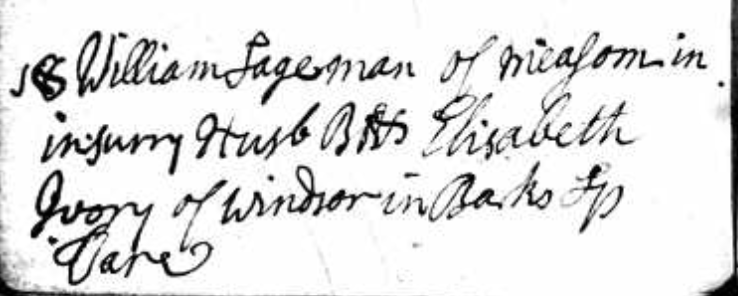 18 William Lageman of measom in
in surry Husb B & Elisabeth
Ivory of windsor in Barks Sp
Care